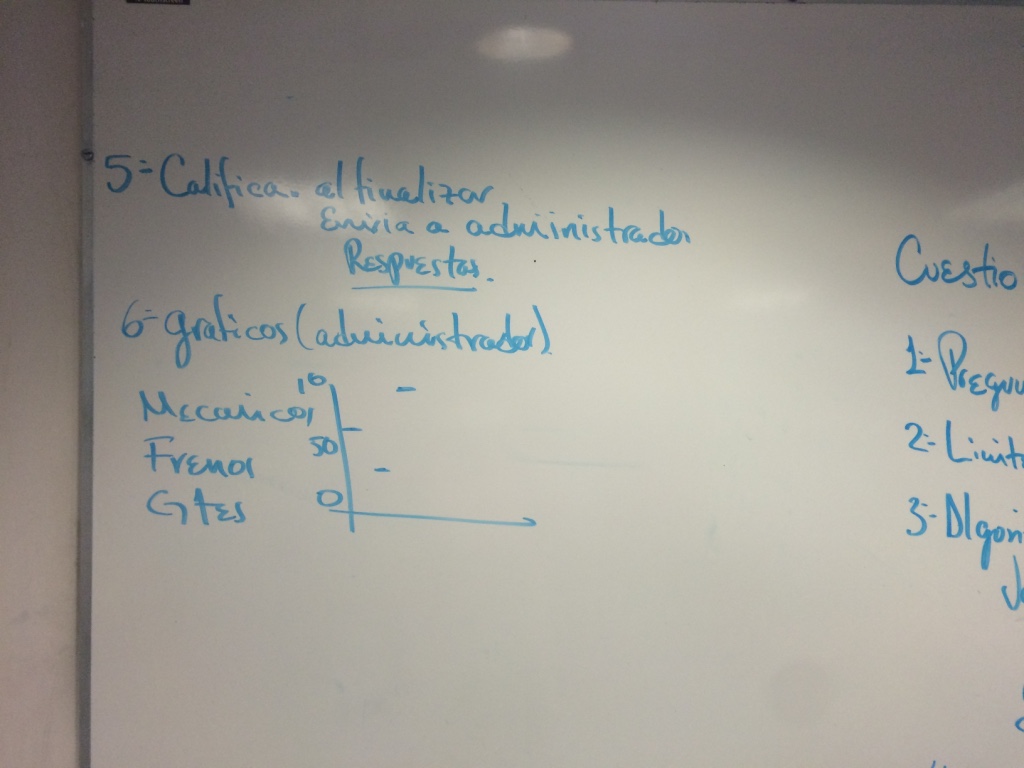 5= Califica. al finalizar
Envia a administrador
Respuestas.
6= graficos (administrador)
10
Mecanicos
50
Frenos
0
GTES
Cuestio
1= Pregun
2= Limit
3= Algori